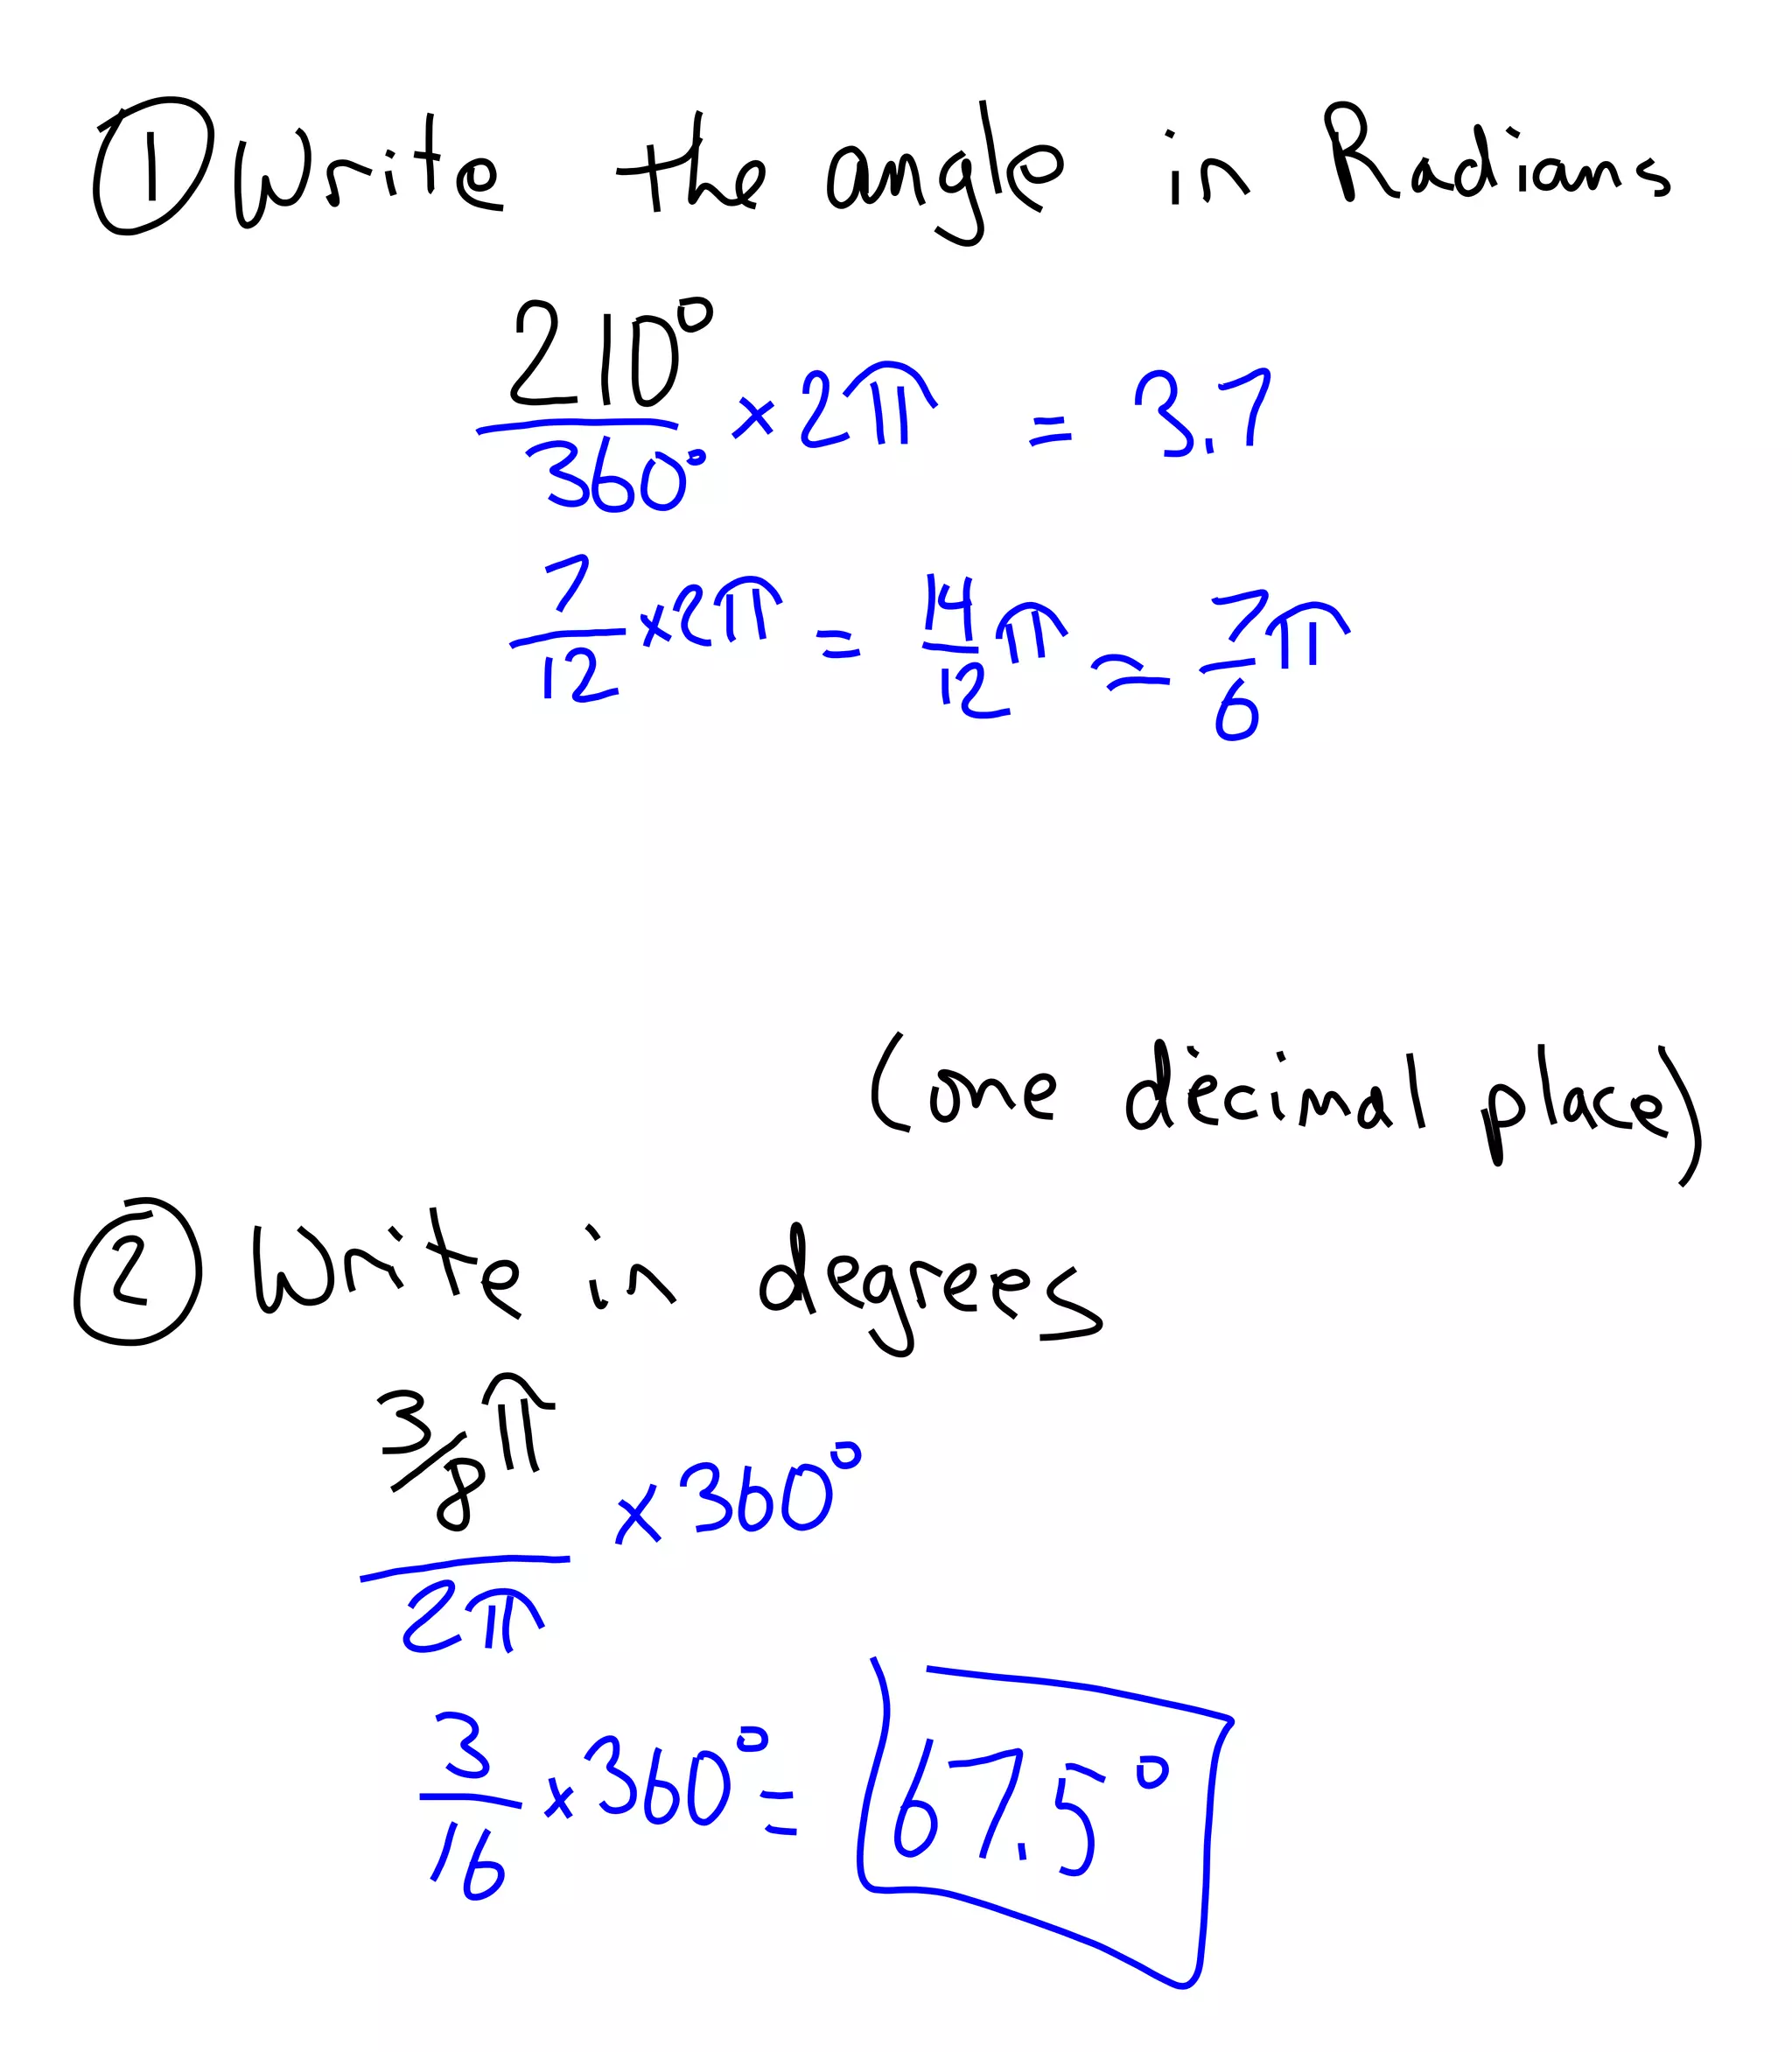 ① Write the angle in Radians
210°/360° × 2π = 3.7
7/12 × 2π = 14/12 π = 7/6 π
(one decimal place)
② Write in degrees
3/8 π / 2π × 360°
3/16 × 360° = 67.5°